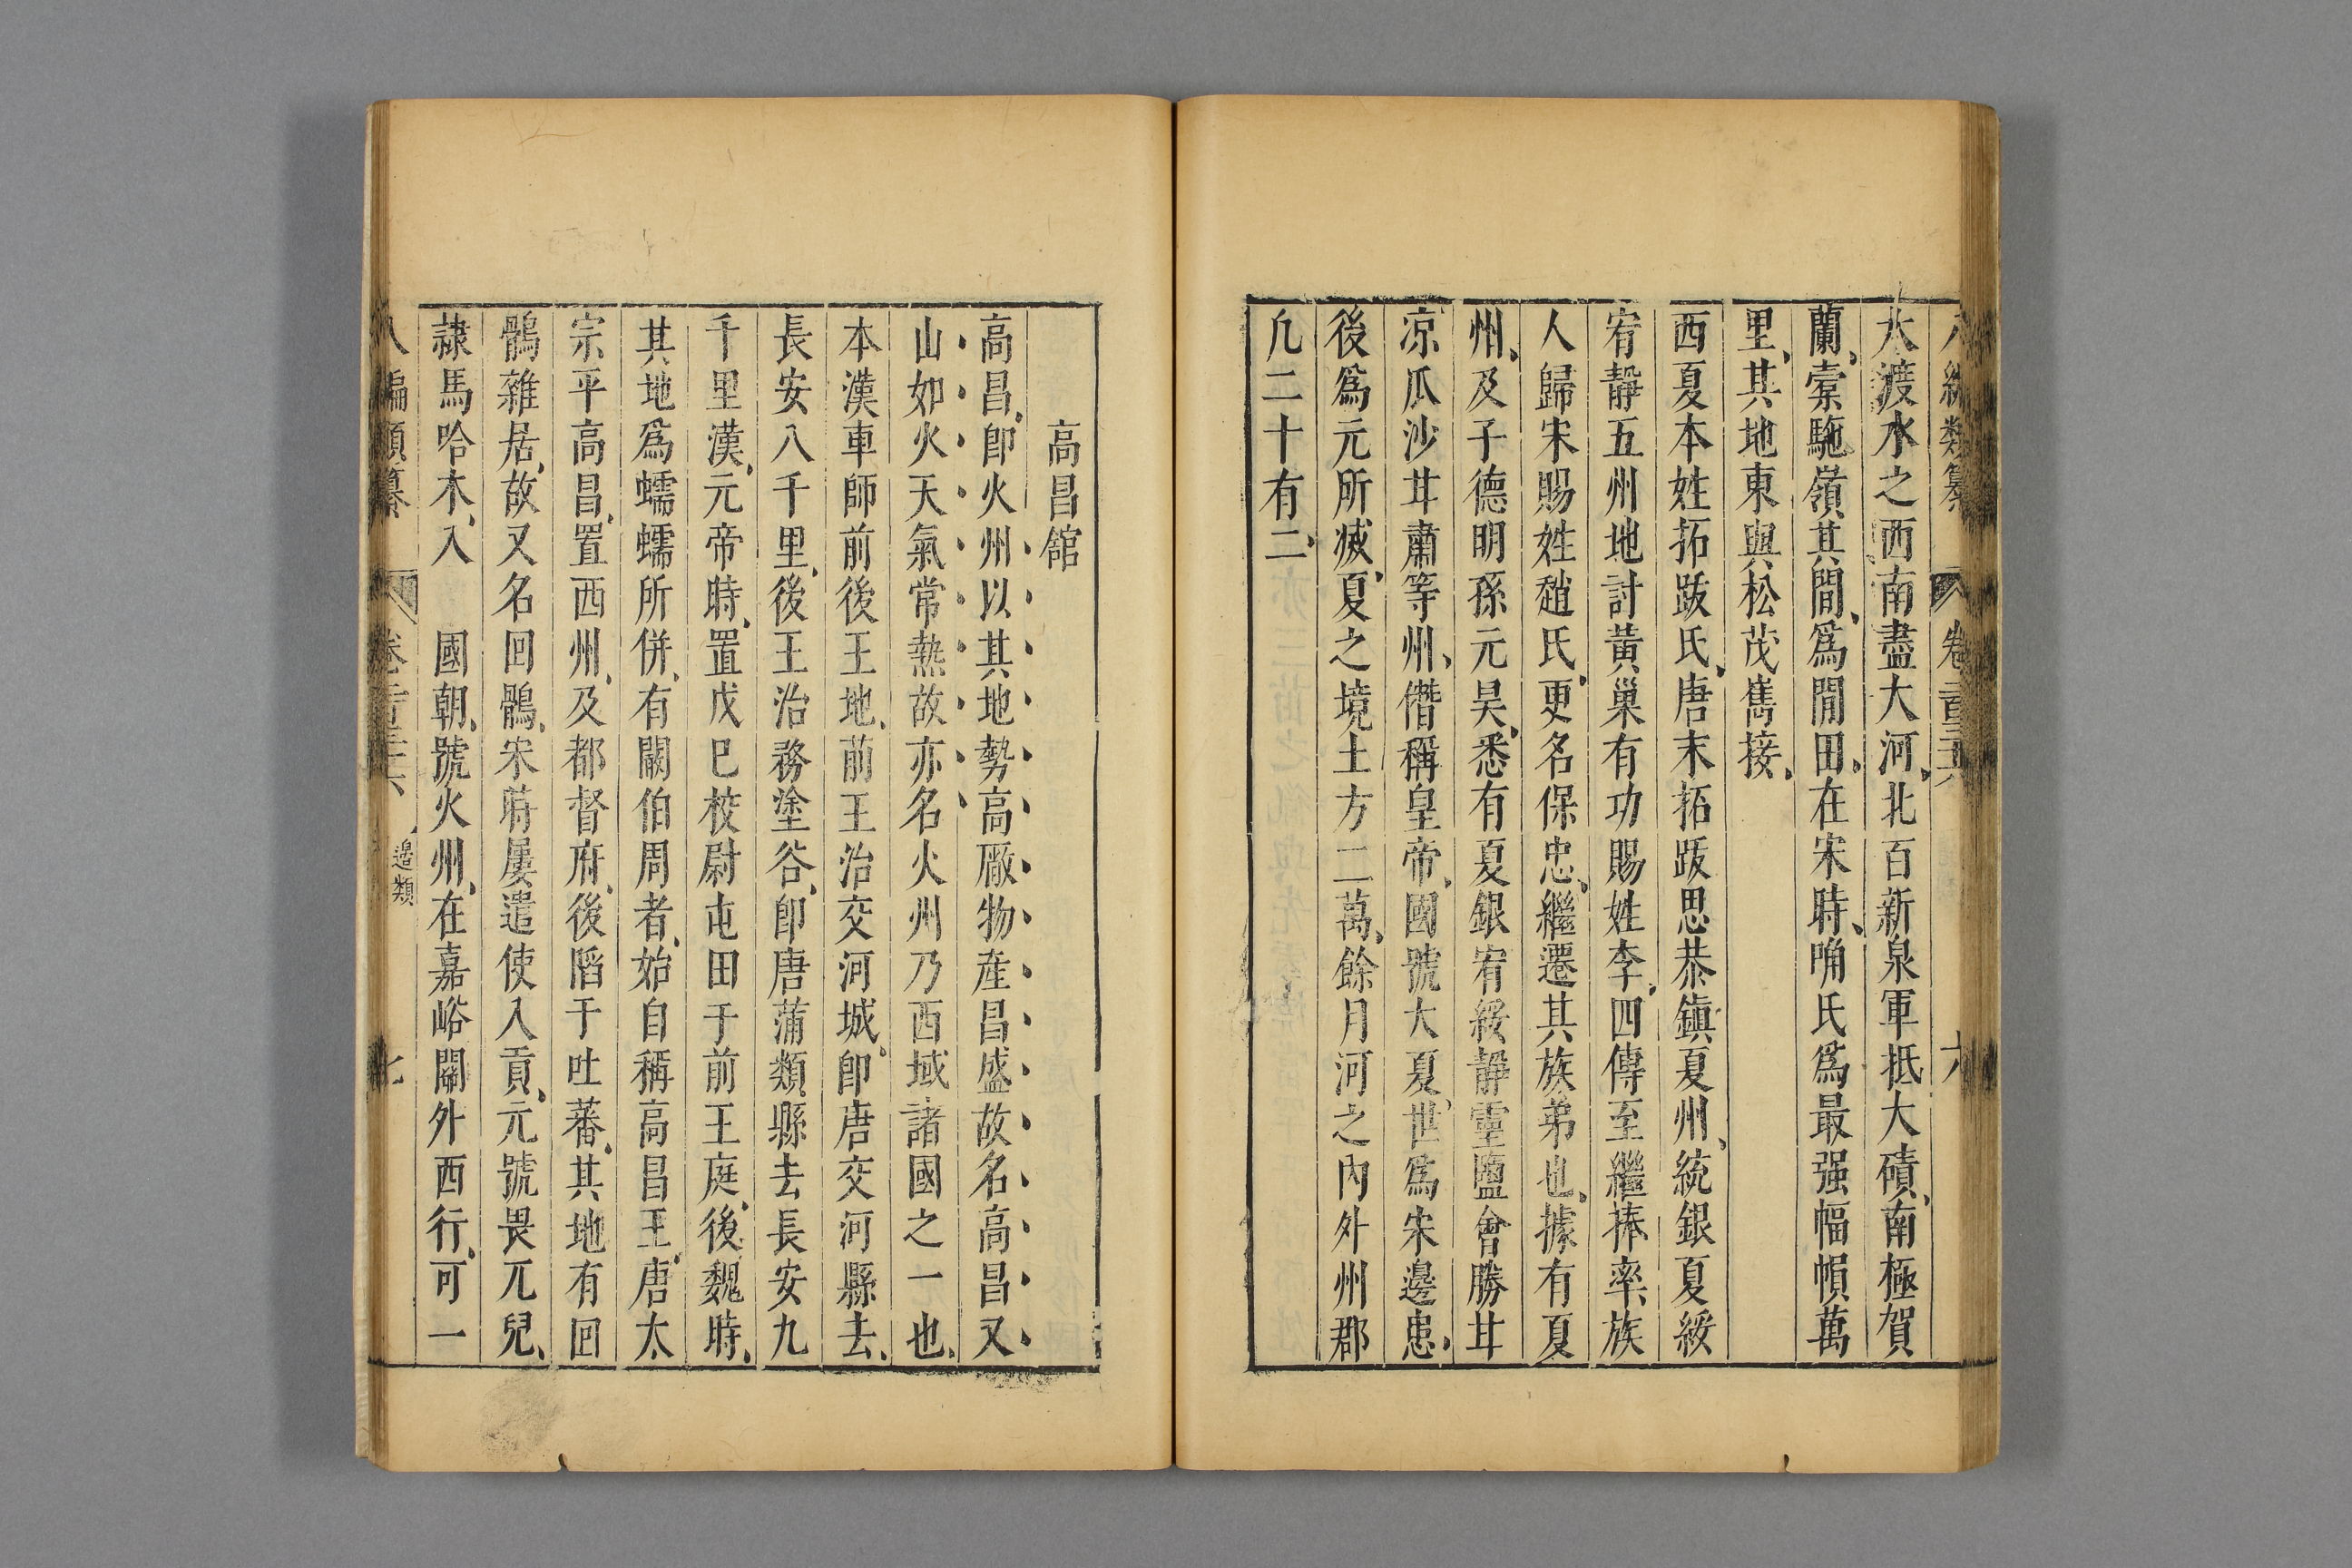 八編類纂 卷 六
大渡水之西南盡大河、北百新泉軍抵大磧、南極賀
蘭、橐駞嶺其間、爲閒田、在宋時、唃氏爲最强幅幀萬
里、其地東與松茂嶲接、
西夏本姓拓跋氏、唐末拓跋思恭鎮夏州、統銀夏綏
宥靜五州地討黃巢有功賜姓李、四傳至繼捧率族
人歸宋賜姓趙氏、更名保忠、繼遷其族弟也、據有夏
州、及子德明孫元昊、悉有夏銀宥綏靜靈鹽會勝甘
凉瓜沙甘肅等州、僭稱皇帝、國號大夏、世爲宋邊患、
後爲元所滅、夏之境土方二萬、餘月河之內外州郡
凢二十有二、
高昌舘
高昌、卽火州以其地勢高厰物産昌盛故名高昌又
山如火天氣常熱故亦名火州乃西域諸國之一也、
本漢車師前後王地、前王治交河城、卽唐交河縣去、
長安八千里、後王治務塗谷、卽唐蒲類縣去長安九
千里漢、元帝時、置戊巳校尉屯田于前王庭、後魏時、
其地爲蠕蠕所併、有闞伯周者、始自稱高昌王、唐太
宗平高昌、置西州、及都督府、後陷于吐蕃、其地有回
鶻雜居、故又名回鶻、宋時屢遣使入貢、元號畏兀兒、
隷馬哈木、入 國朝、號火州、在嘉峪關外西行、可一
八編類纂 卷 邉類 七